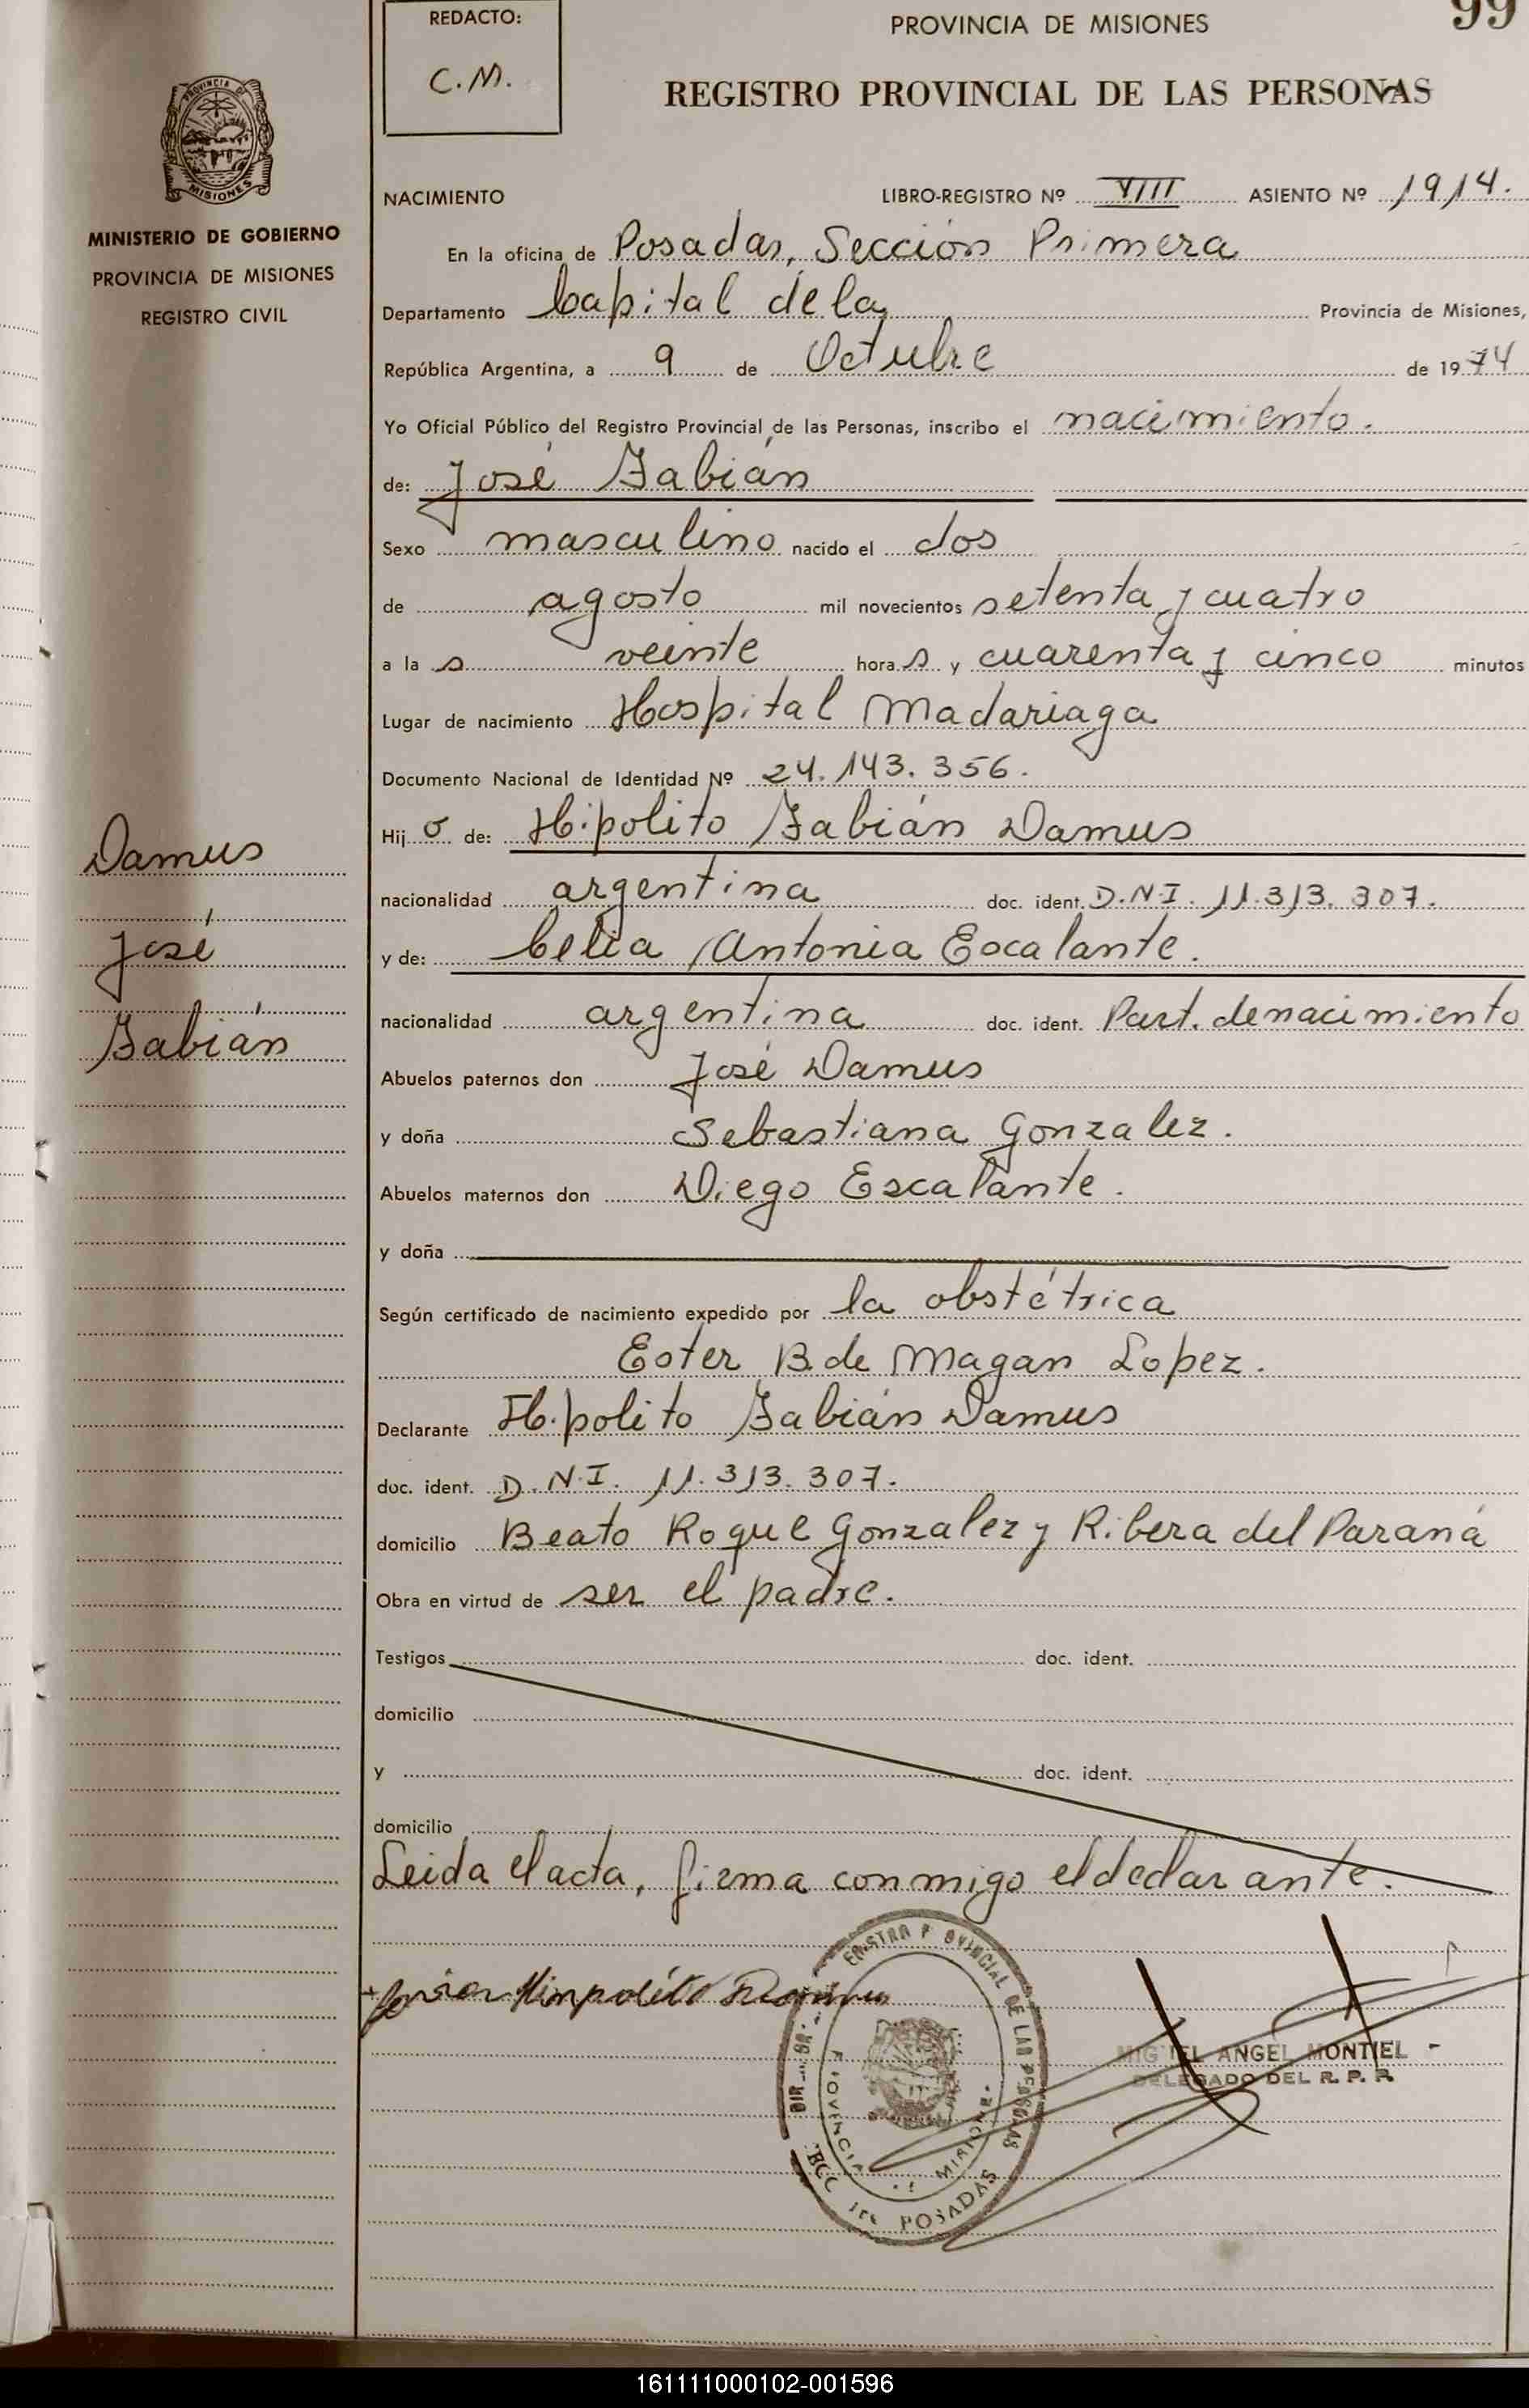 REDACTO:
C.M.
PROVINCIA DE MISIONES
99
REGISTRO PROVINCIAL DE LAS PERSONAS
MISIONES
MINISTERIO DE GOBIERNO
PROVINCIA DE MISIONES
REGISTRO CIVIL
NACIMIENTO LIBRO-REGISTRO Nº VIII ASIENTO Nº 1914.
En la oficina de Posadas, Sección Primera
Departamento Capital de la Provincia de Misiones,
República Argentina, a 9 de Octubre de 1974
Yo Oficial Público del Registro Provincial de las Personas, inscribo el nacimiento.
de: José Fabián
Sexo masculino nacido el dos
de agosto mil novecientos setenta y cuatro
a la s veinte hora s y cuarenta y cinco minutos
Lugar de nacimiento Hospital Madariaga
Documento Nacional de Identidad Nº 24.143.356.
Hij o de: Hipolito Fabián Damus
nacionalidad argentina doc. ident. D.N.I. 11.313.307.
y de: Celia Antonia Escalante.
nacionalidad argentina doc. ident. Part. de nacimiento
Abuelos paternos don José Damus
y doña Sebastiana Gonzalez.
Abuelos maternos don Diego Escalante.
y doña
Según certificado de nacimiento expedido por la obstétrica
Ester B. de Magan Lopez.
Declarante Hipolito Fabián Damus
doc. ident. D.N.I. 11.313.307.
domicilio Beato Roque Gonzalez y Ribera del Paraná
Obra en virtud de ser el padre.
Testigos doc. ident.
domicilio
y doc. ident.
domicilio
Leida el acta, firma conmigo el declarante.
Damus
José
Fabián
MIGUEL ANGEL MONTIEL
DELEGADO DEL R. P. P.
POSADAS
161111000102-001596